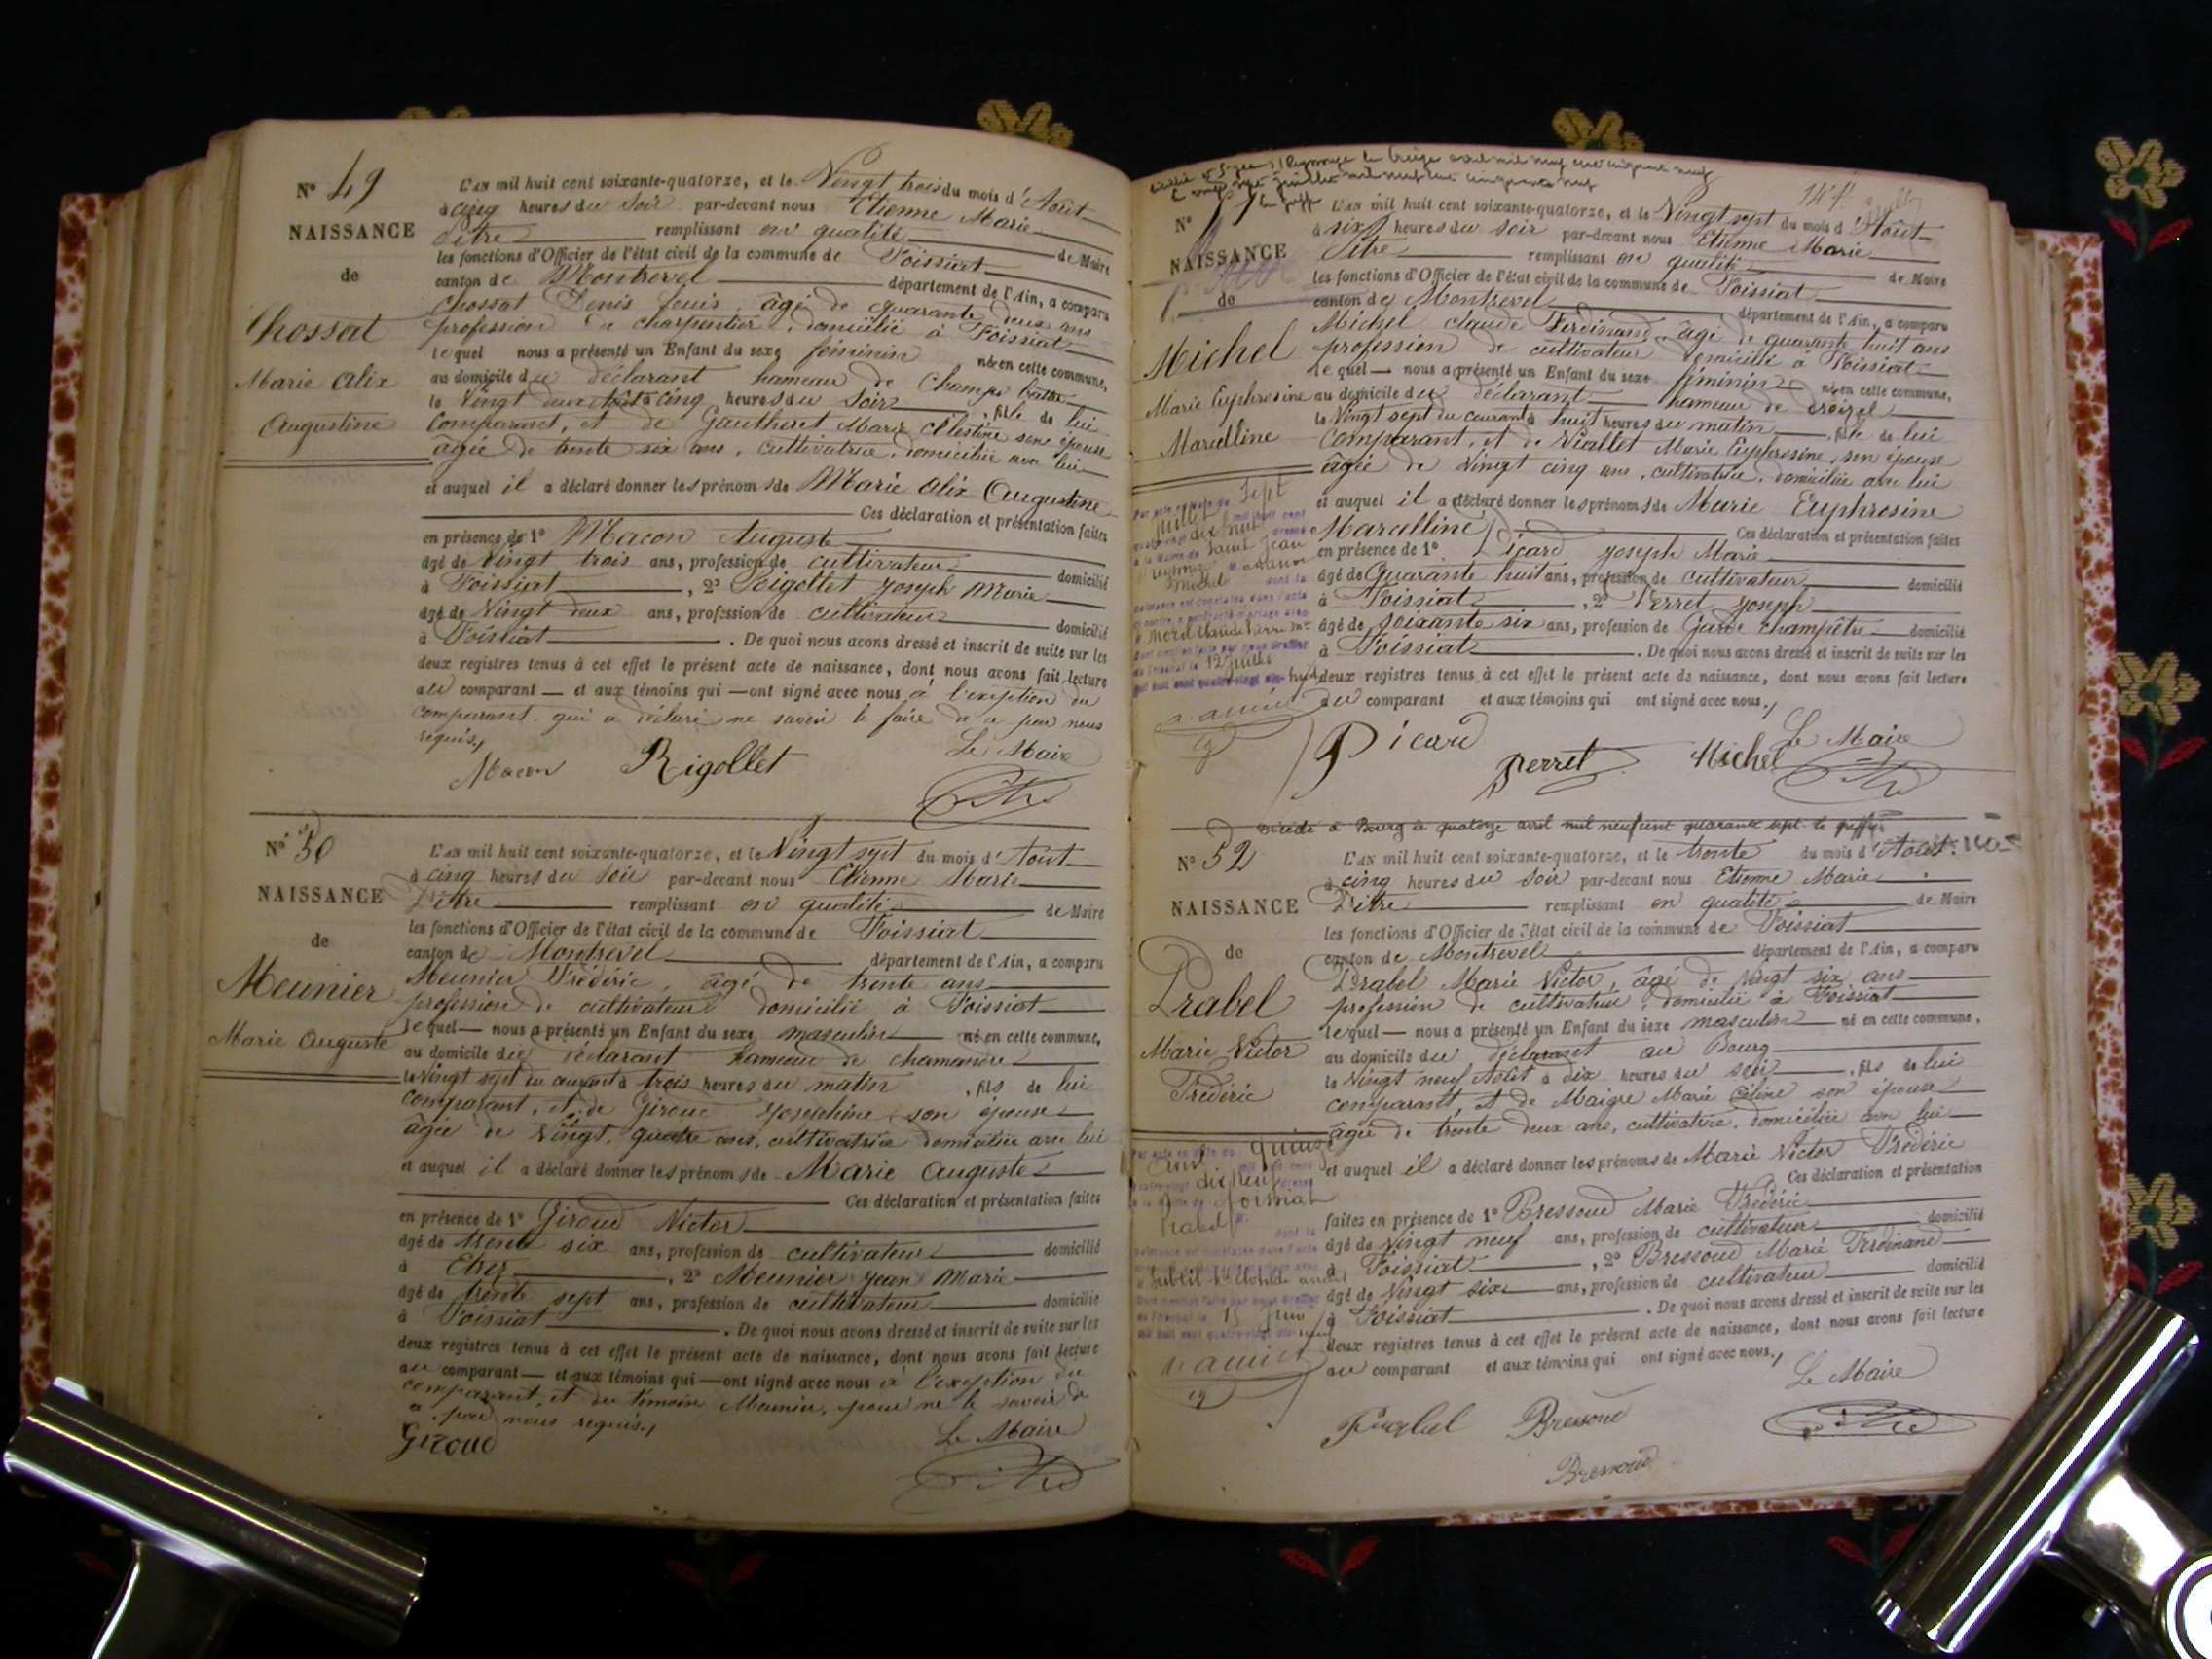 N° 49
NAISSANCE
de
Chossat
Marie Alix
Augustine
L'AN mil huit cent soixante-quatorze, et le Vingt trois du mois d'Août
à cinq heures du soir par-devant nous Etienne Marie
Pitre remplissant en qualité de Maire
les fonctions d'Officier de l'état civil de la commune de Foissiat
canton de Montrevel département de l'Ain, a comparu
Chossat Denis Louis, âgé de quarante deux ans
profession de charpentier, domicilié à Foissiat
lequel nous a présenté un Enfant du sexe féminin née en cette commune,
au domicile du déclarant hameau de Champ
le Vingt deux août à cinq heures du soir, fille de lui
comparant, et de Gautheret Marie Célestine son épouse
âgée de trente six ans, cultivatrice, domiciliée avec lui
et auquel il a déclaré donner les prénoms de Marie Alix Augustine
Ces déclaration et présentation faites
en présence de 1° Macon Auguste
âgé de Vingt trois ans, profession de cultivateur domicilié
à Foissiat, 2° Rigollet Joseph Marie
âgé de Vingt deux ans, profession de cultivateur domicilié
à Foissiat. De quoi nous avons dressé et inscrit de suite sur les
deux registres tenus à cet effet le présent acte de naissance, dont nous avons fait lecture
au comparant et aux témoins qui ont signé avec nous à l'exception du
comparant qui a déclaré ne savoir le faire de ce par nous
requis,
Macon Rigollet Le Maire
N° 50
NAISSANCE
de
Meunier
Marie Auguste
L'AN mil huit cent soixante-quatorze, et le Vingt sept du mois d'Août
à cinq heures du soir par-devant nous Etienne Marie
Pitre remplissant en qualité de Maire
les fonctions d'Officier de l'état civil de la commune de Foissiat
canton de Montrevel département de l'Ain, a comparu
Meunier Frédéric, âgé de trente ans
profession de cultivateur domicilié à Foissiat
lequel nous a présenté un Enfant du sexe masculin né en cette commune,
au domicile du déclarant hameau de
le Vingt sept du courant à trois heures du matin, fils de lui
comparant, et de Giroud Joséphine son épouse
âgée de Vingt quatre ans, cultivatrice domiciliée avec lui
et auquel il a déclaré donner les prénoms de Marie Auguste
Ces déclaration et présentation faites
en présence de 1° Giroud Victor
âgé de trente six ans, profession de cultivateur domicilié
à Etrez, 2° Meunier Jean Marie
âgé de trente sept ans, profession de cultivateur domicilié
à Foissiat. De quoi nous avons dressé et inscrit de suite sur les
deux registres tenus à cet effet le présent acte de naissance, dont nous avons fait lecture
au comparant et aux témoins qui ont signé avec nous à l'exception du
comparant, et du témoin Meunier, pour ne le savoir de
ce par nous requis,
Giroud Le Maire
N°
NAISSANCE
de
Michel
Marie Euphrosine
Marcelline
L'AN mil huit cent soixante-quatorze, et le Vingt sept du mois d'Août
à six heures du soir par-devant nous Etienne Marie
Pitre remplissant en qualité de Maire
les fonctions d'Officier de l'état civil de la commune de Foissiat
canton de Montrevel département de l'Ain, a comparu
Michel Claude Ferdinand, âgé de quarante huit ans
profession de cultivateur domicilié à Foissiat
lequel nous a présenté un Enfant du sexe féminin née en cette commune,
au domicile du déclarant hameau de
le Vingt sept du courant à huit heures du matin, fille de lui
comparant, et de Viallet Marie Euphrosine, son épouse
âgée de Vingt cinq ans, cultivatrice, domiciliée avec lui
et auquel il a déclaré donner les prénoms de Marie Euphrosine
Marcelline Ces déclaration et présentation faites
en présence de 1° Picard Joseph Marie
âgé de Quarante huit ans, profession de cultivateur domicilié
à Foissiat, 2° Perret Joseph
âgé de soixante six ans, profession de Garde champêtre domicilié
à Foissiat. De quoi nous avons dressé et inscrit de suite sur les
deux registres tenus à cet effet le présent acte de naissance, dont nous avons fait lecture
au comparant et aux témoins qui ont signé avec nous,
Picard Perret Michel Le Maire
Décédé à Bourg le quatorze avril mil neuf cent quarante sept le greffier
N° 52
NAISSANCE
de
Prabel
Marie Victor
Frédéric
L'AN mil huit cent soixante-quatorze, et le trente du mois d'Août
à cinq heures du soir par-devant nous Etienne Marie
Pitre remplissant en qualité de Maire
les fonctions d'Officier de l'état civil de la commune de Foissiat
canton de Montrevel département de l'Ain, a comparu
Prabel Marie Victor, âgé de Vingt six ans
profession de cultivateur, domicilié à Foissiat
lequel nous a présenté un Enfant du sexe masculin né en cette commune,
au domicile du déclarant au Bourg
le Vingt neuf Août à dix heures du soir, fils de lui
comparant, et de Maigre Marie Céline son épouse
âgée de trente deux ans, cultivatrice, domiciliée avec lui
et auquel il a déclaré donner les prénoms de Marie Victor Frédéric
Ces déclaration et présentation
faites en présence de 1° Bressoud Marie Frédéric
âgé de Vingt neuf ans, profession de cultivateur domicilié
à Foissiat, 2° Bressoud Marie Ferdinand
âgé de Vingt six ans, profession de cultivateur domicilié
à Foissiat. De quoi nous avons dressé et inscrit de suite sur les
deux registres tenus à cet effet le présent acte de naissance, dont nous avons fait lecture
au comparant et aux témoins qui ont signé avec nous,
Le Maire
Bressoud
Bressoud